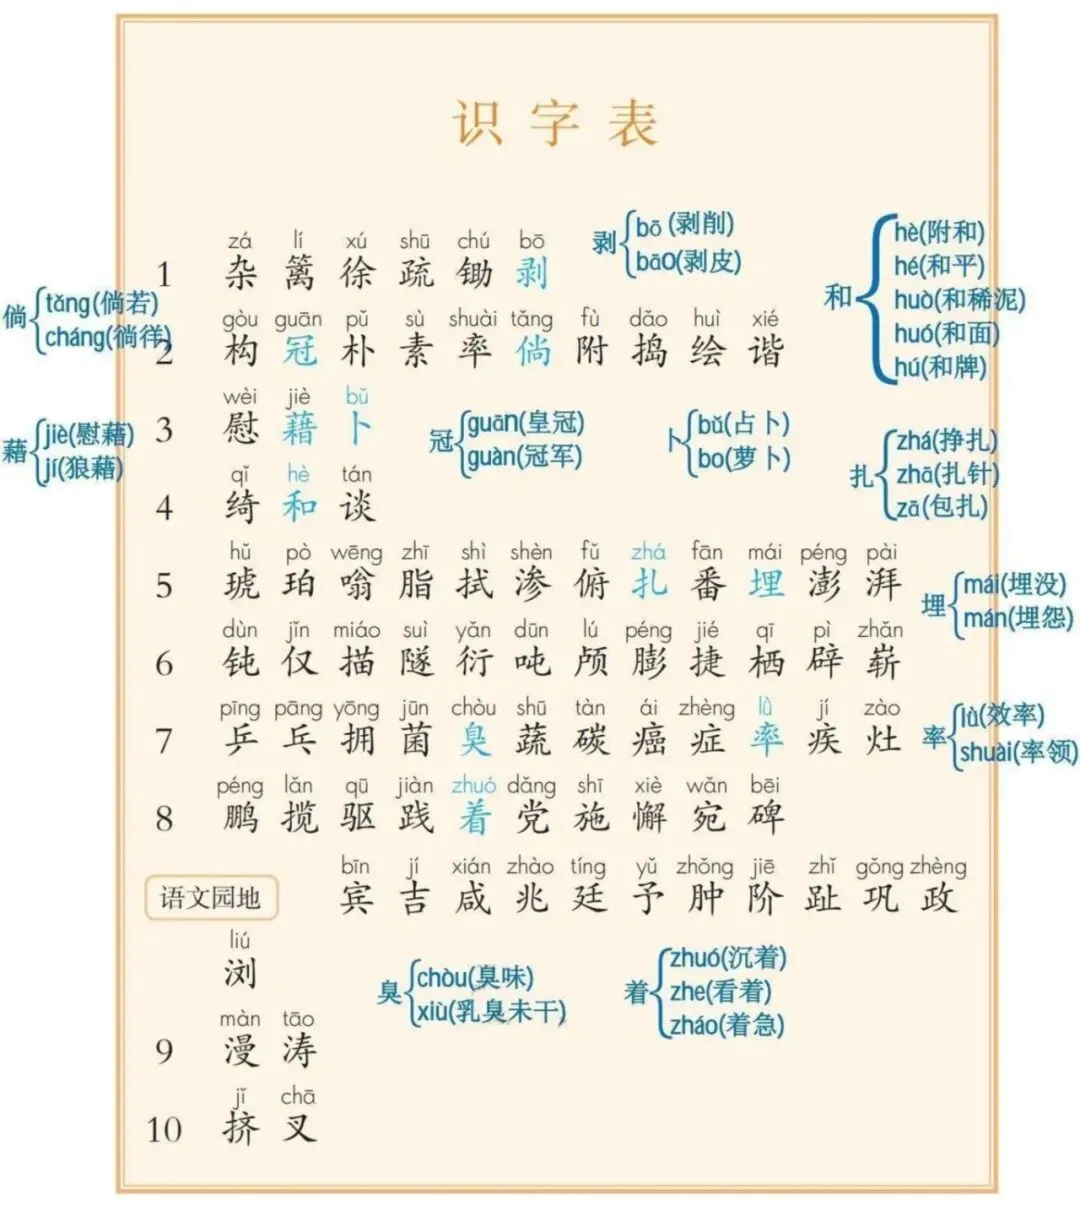 识字表
zá lí xú shū chú bō
1 杂 篱 徐 疏 锄 剥
剥 bō (剥削)
bāo(剥皮)
和 hè(附和)
hé(和平)
huò(和稀泥)
huó(和面)
hú(和牌)
倘 tǎng(倘若)
cháng(徜徉)
gòu guān pǔ sù shuài tǎng fù dǎo huì xié
2 构 冠 朴 素 率 倘 附 捣 绘 谐
wèi jiè bǔ
3 慰 藉 卜
藉 jiè(慰藉)
jí(狼藉)
冠 guān(皇冠)
guàn(冠军)
卜 bǔ(占卜)
bo(萝卜)
扎 zhá(挣扎)
zhā(扎针)
zā(包扎)
qǐ hè tán
4 绮 和 谈
hǔ pò wēng zhī shì shèn fǔ zhá fān mái péng pài
5 琥 珀 嗡 脂 拭 渗 俯 扎 番 埋 澎 湃
埋 mái(埋没)
mán(埋怨)
dùn jǐn miáo suì yǎn dūn lú péng jié qī pì zhǎn
6 钝 仅 描 隧 衍 吨 颅 膨 捷 栖 辟 崭
pīng pāng yōng jūn chòu shū tàn ái zhèng lǜ jí zào
7 乒 乓 拥 菌 臭 蔬 碳 癌 症 率 疾 灶
率 lǜ(效率)
shuài(率领)
péng lǎn qū jiàn zhuó dǎng shī xiè wǎn bēi
8 鹏 揽 驱 践 着 党 施 懈 宛 碑
bīn jí xián zhào tíng yǔ zhǒng jiē zhǐ gǒng zhèng
语文园地 宾 吉 咸 兆 廷 予 肿 阶 趾 巩 政
liú
浏
臭 chòu(臭味)
xiù(乳臭未干)
着 zhuó(沉着)
zhe(看着)
zháo(着急)
màn tāo
9 漫 涛
jǐ chā
10 挤 叉